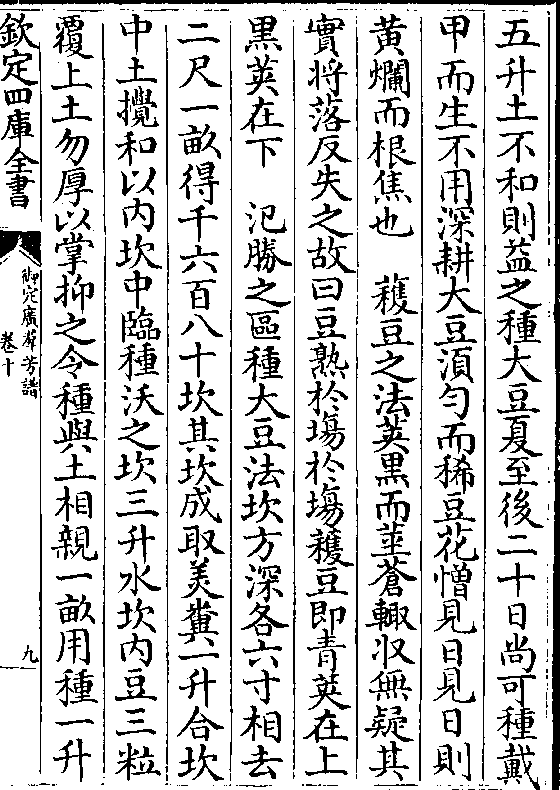 五升土不和則益之種大豆夏至後二十日尚可種戴
甲而生不用深耕大豆湏勻而稀豆花憎見日見日則
黄爛而根焦也　穫豆之法莢黒而莖蒼輙収無疑其
實將落反失之故曰豆熟於塲於塲穫豆即青莢在上
黒莢在下　氾勝之區種大豆法坎方深各六寸相去
二尺一畝得千六百八十坎其坎成取美糞一升合坎
中土攪和以内坎中臨種沃之坎三升水坎内豆三粒
覆上土勿厚以掌抑之令種與土相親一畝用種一升
欽定四庫全書
御定廣羣芳譜
卷十
九